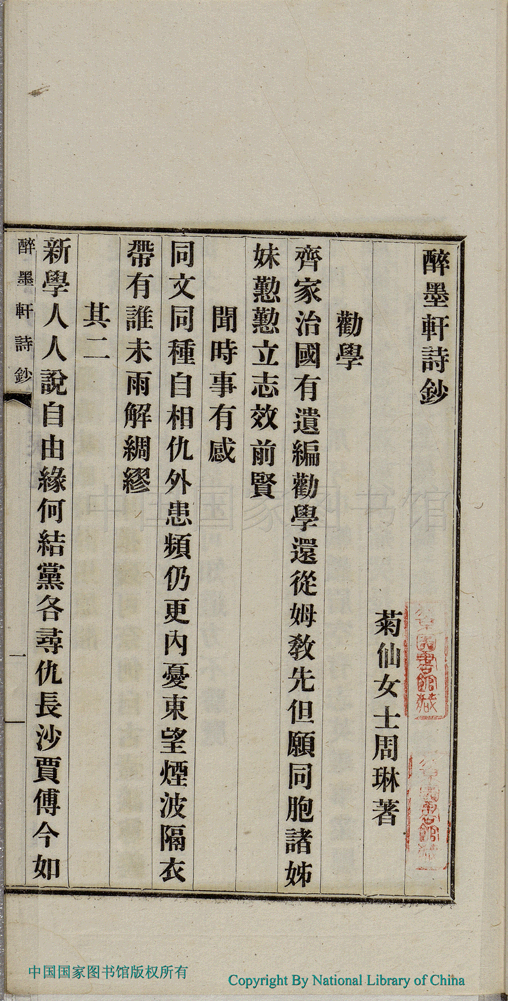 醉墨軒詩鈔
菊仙女士周琳著
勸學
齊家治國有遺編勸學還從姆敎先但願同胞諸姊
妹懃懃立志效前賢
聞時事有感
同文同種自相仇外患頻仍更內憂東望煙波隔衣
帶有誰未雨解綢繆
其二
新學人人說自由緣何結黨各尋仇長沙賈傅今如
醉墨軒詩鈔
一
中国国家图书馆
中国国家图书馆版权所有
Copyright By National Library of China